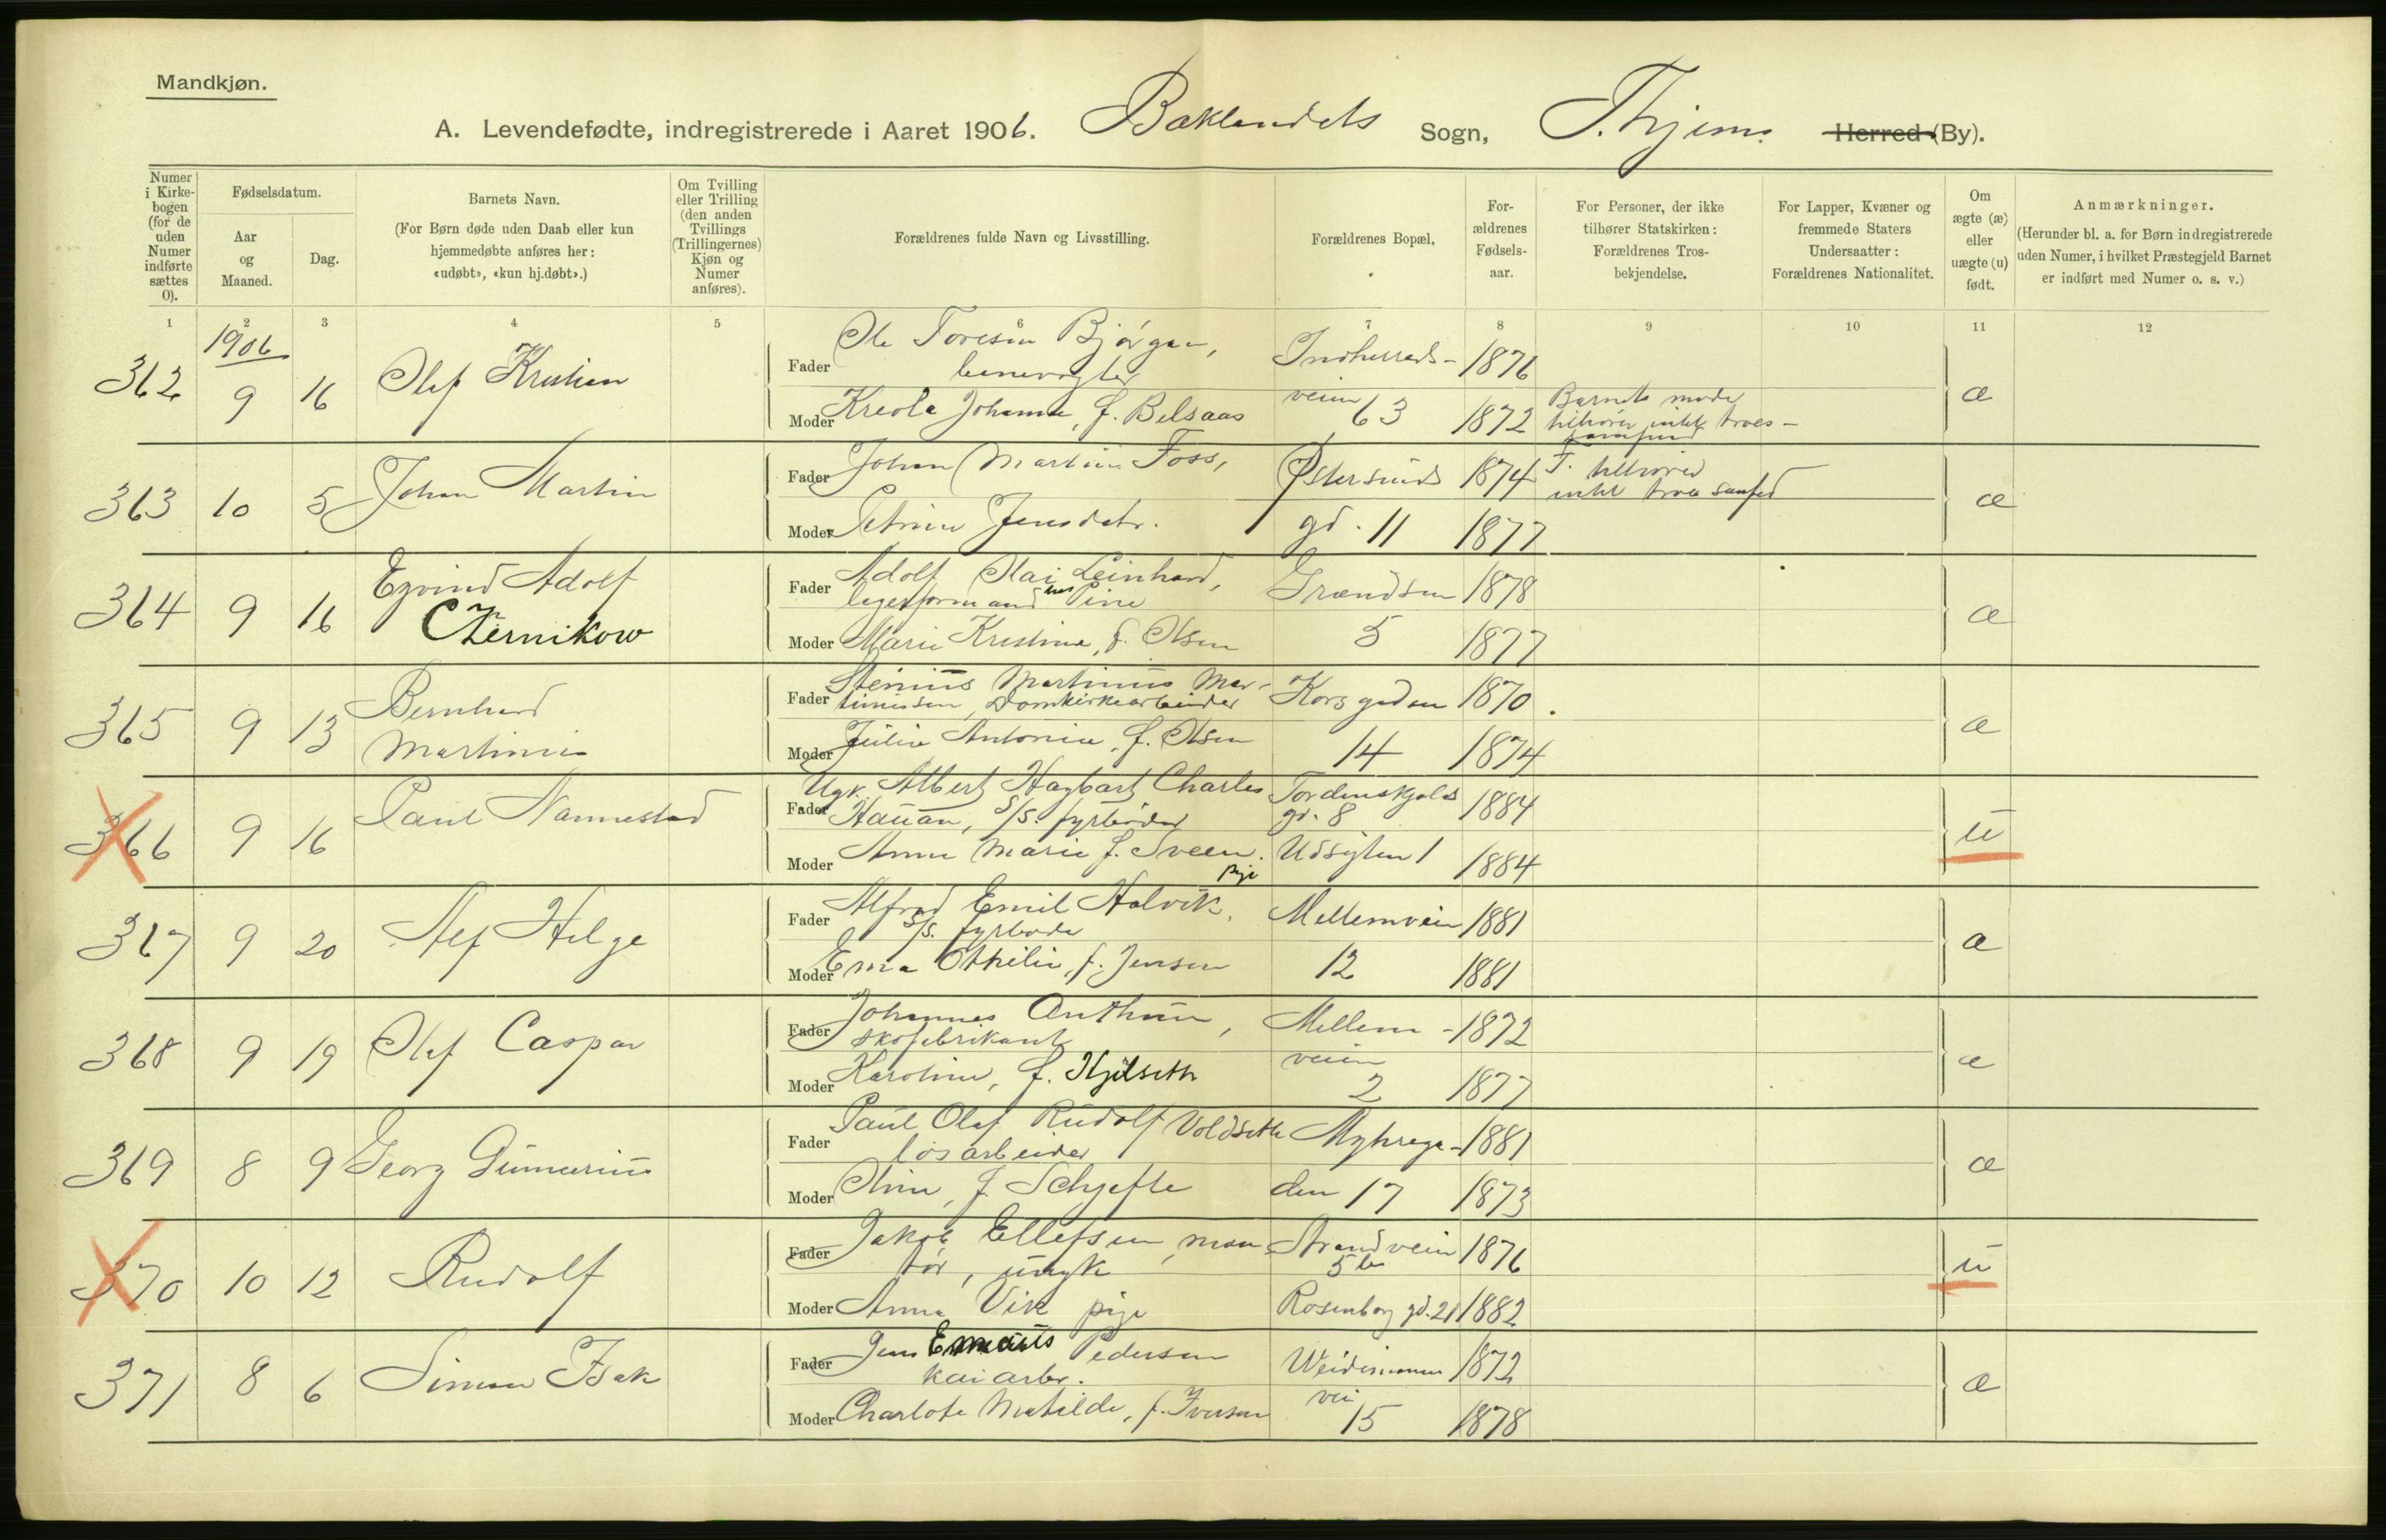 Mandkjøn.
A. Levendefødte, indregistrerede i Aaret 1906. Baklandets Sogn, T.hjems Herred (By).
Numer i Kirkebogen (for de uden Numer indførte sættes 0).
Fødselsdatum.
Aar og Maaned.
Dag.
Barnets Navn.
(For Børn døde uden Daab eller kun hjemmedøbte anføres her: «udøbt», «kun hj.døbt».)
Om Tvilling eller Trilling (den anden Tvillings (Trillingernes) Kjøn og Numer anføres).
Forældrenes fulde Navn og Livsstilling.
Forældrenes Bopæl.
Forældrenes Fødselsaar.
For Personer, der ikke tilhører Statskirken: Forældrenes Trosbekjendelse.
For Lapper, Kvæner og fremmede Staters Undersaatter: Forældrenes Nationalitet.
Om ægte (æ) eller uægte (u) født.
Anmærkninger.
(Herunder bl. a. for Børn indregistrerede uden Numer, i hvilket Præstegjeld Barnet er indført med Numer o. s. v.)
1 2 3 4 5 6 7 8 9 10 11 12
1906
362 9 16 Olaf Kristian
Fader Ole Toresen Bjørgan, banevogter Indherreds- 1876
Moder Kreole Johanna, f. Belsaas veien 63 1872 Barnets moder tilhører intet troes-samfund æ
363 10 5 Johan Martin
Fader Johan Martin Foss, Østersunds 1874 F. tilhører intet troes samfud
Moder Petrine Jensdatr. gd. 11 1877 æ
364 9 16 Eyvind Adolf Czernikow
Fader Adolf Olai Leinhard, Grændsen 1878
Moder Marie Kristine, f. Olsen 5 1877 æ
365 9 13 Bernhard Martinus
Fader Stenius Martinus Martinussen, Domkirkearbeider Korsgaden 1870
Moder Julie Antonie, f. Olsen 14 1874 æ
366 9 16 Paul Nannestad
Fader Ugk. Albert Hagbart Charles Hauan, S/S. fyrbøder Tordenskjolds gd. 8 1884
Moder Anna Marie f. Sveen. Pige Udsigten 1 1884 u
367 9 20 Alf Helge
Fader Alfred Emil Halvik, S/S. fyrbøder Mellemveien 1881
Moder Ema Othilie, f. Jensen 12 1881 æ
368 9 19 Olaf Caspar
Fader Johannes Anthun, skofabrikant Mellem- 1872
Moder Karoline, f. Hjelseth veien 2 1877 æ
369 8 9 Georg Gunnerius
Fader Paul Olaf Rudolf Voldseth løsarbeider Myhrega- 1881
Moder Oline, f. Schjefte den 17 1873 æ
370 10 12 Rudolf
Fader Jakob Ellefsen, montør, ungk Strandveien 5 b 1876
Moder Anna Vik pige Rosenborg gd. 21 1882 u
371 8 6 Simon Isak
Fader Jens Emaus Pedersen kaiarbr. Weidemanns 1872
Moder Charlote Matilde, f. Iversen vei 15 1878 æ